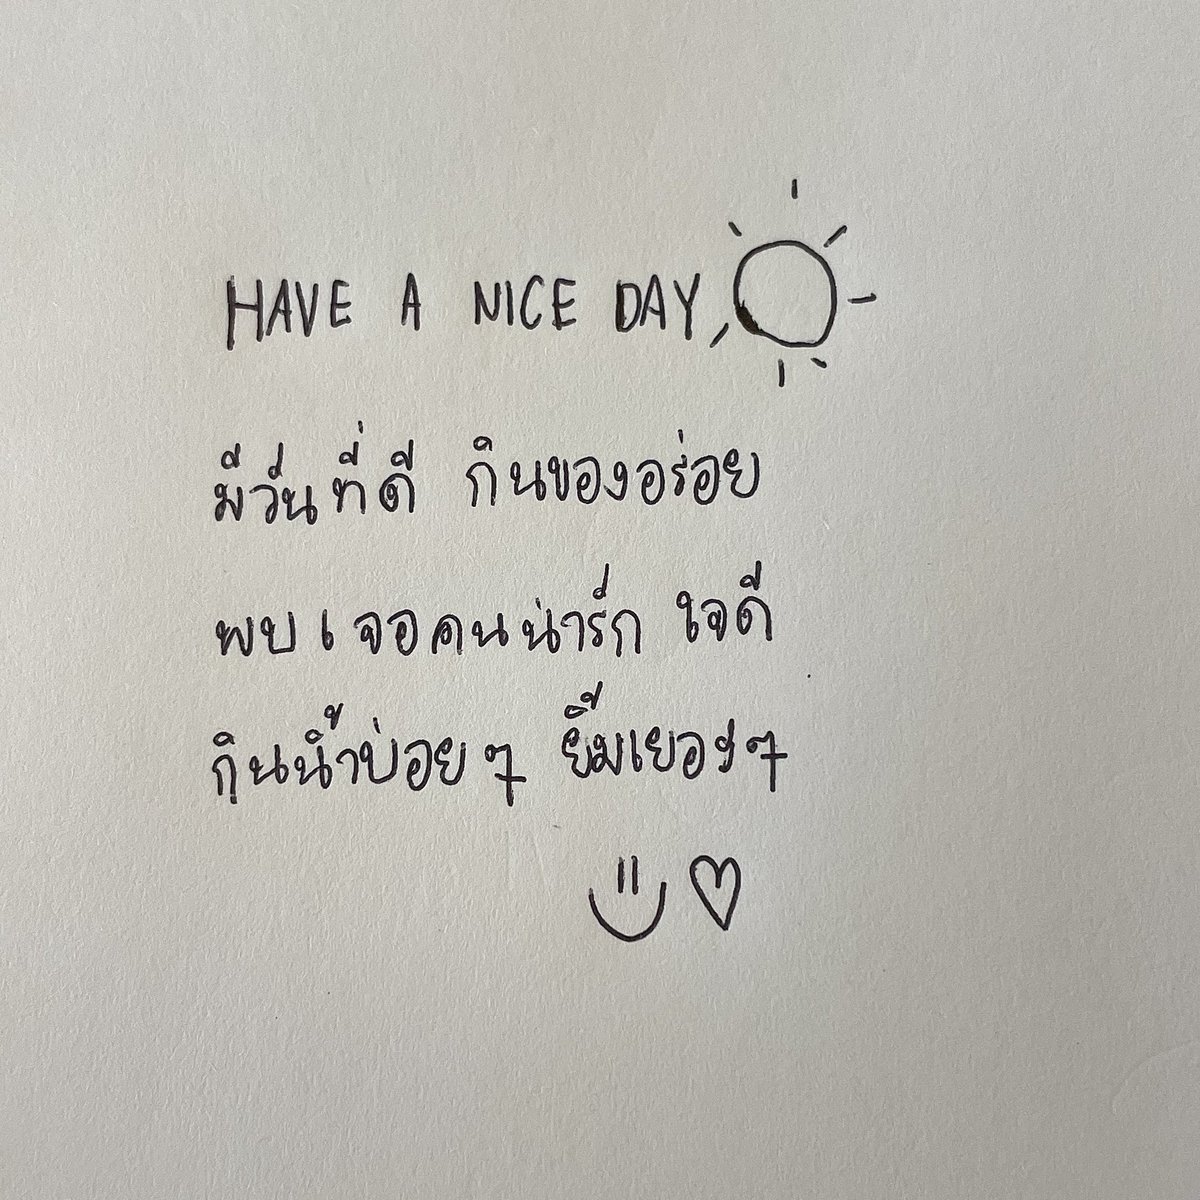 HAVE A NICE DAY
มีวันที่ดี กินของอร่อย
พบเจอคนน่ารัก ใจดี
กินน้ำบ่อยๆ ยิ้มเยอะๆ